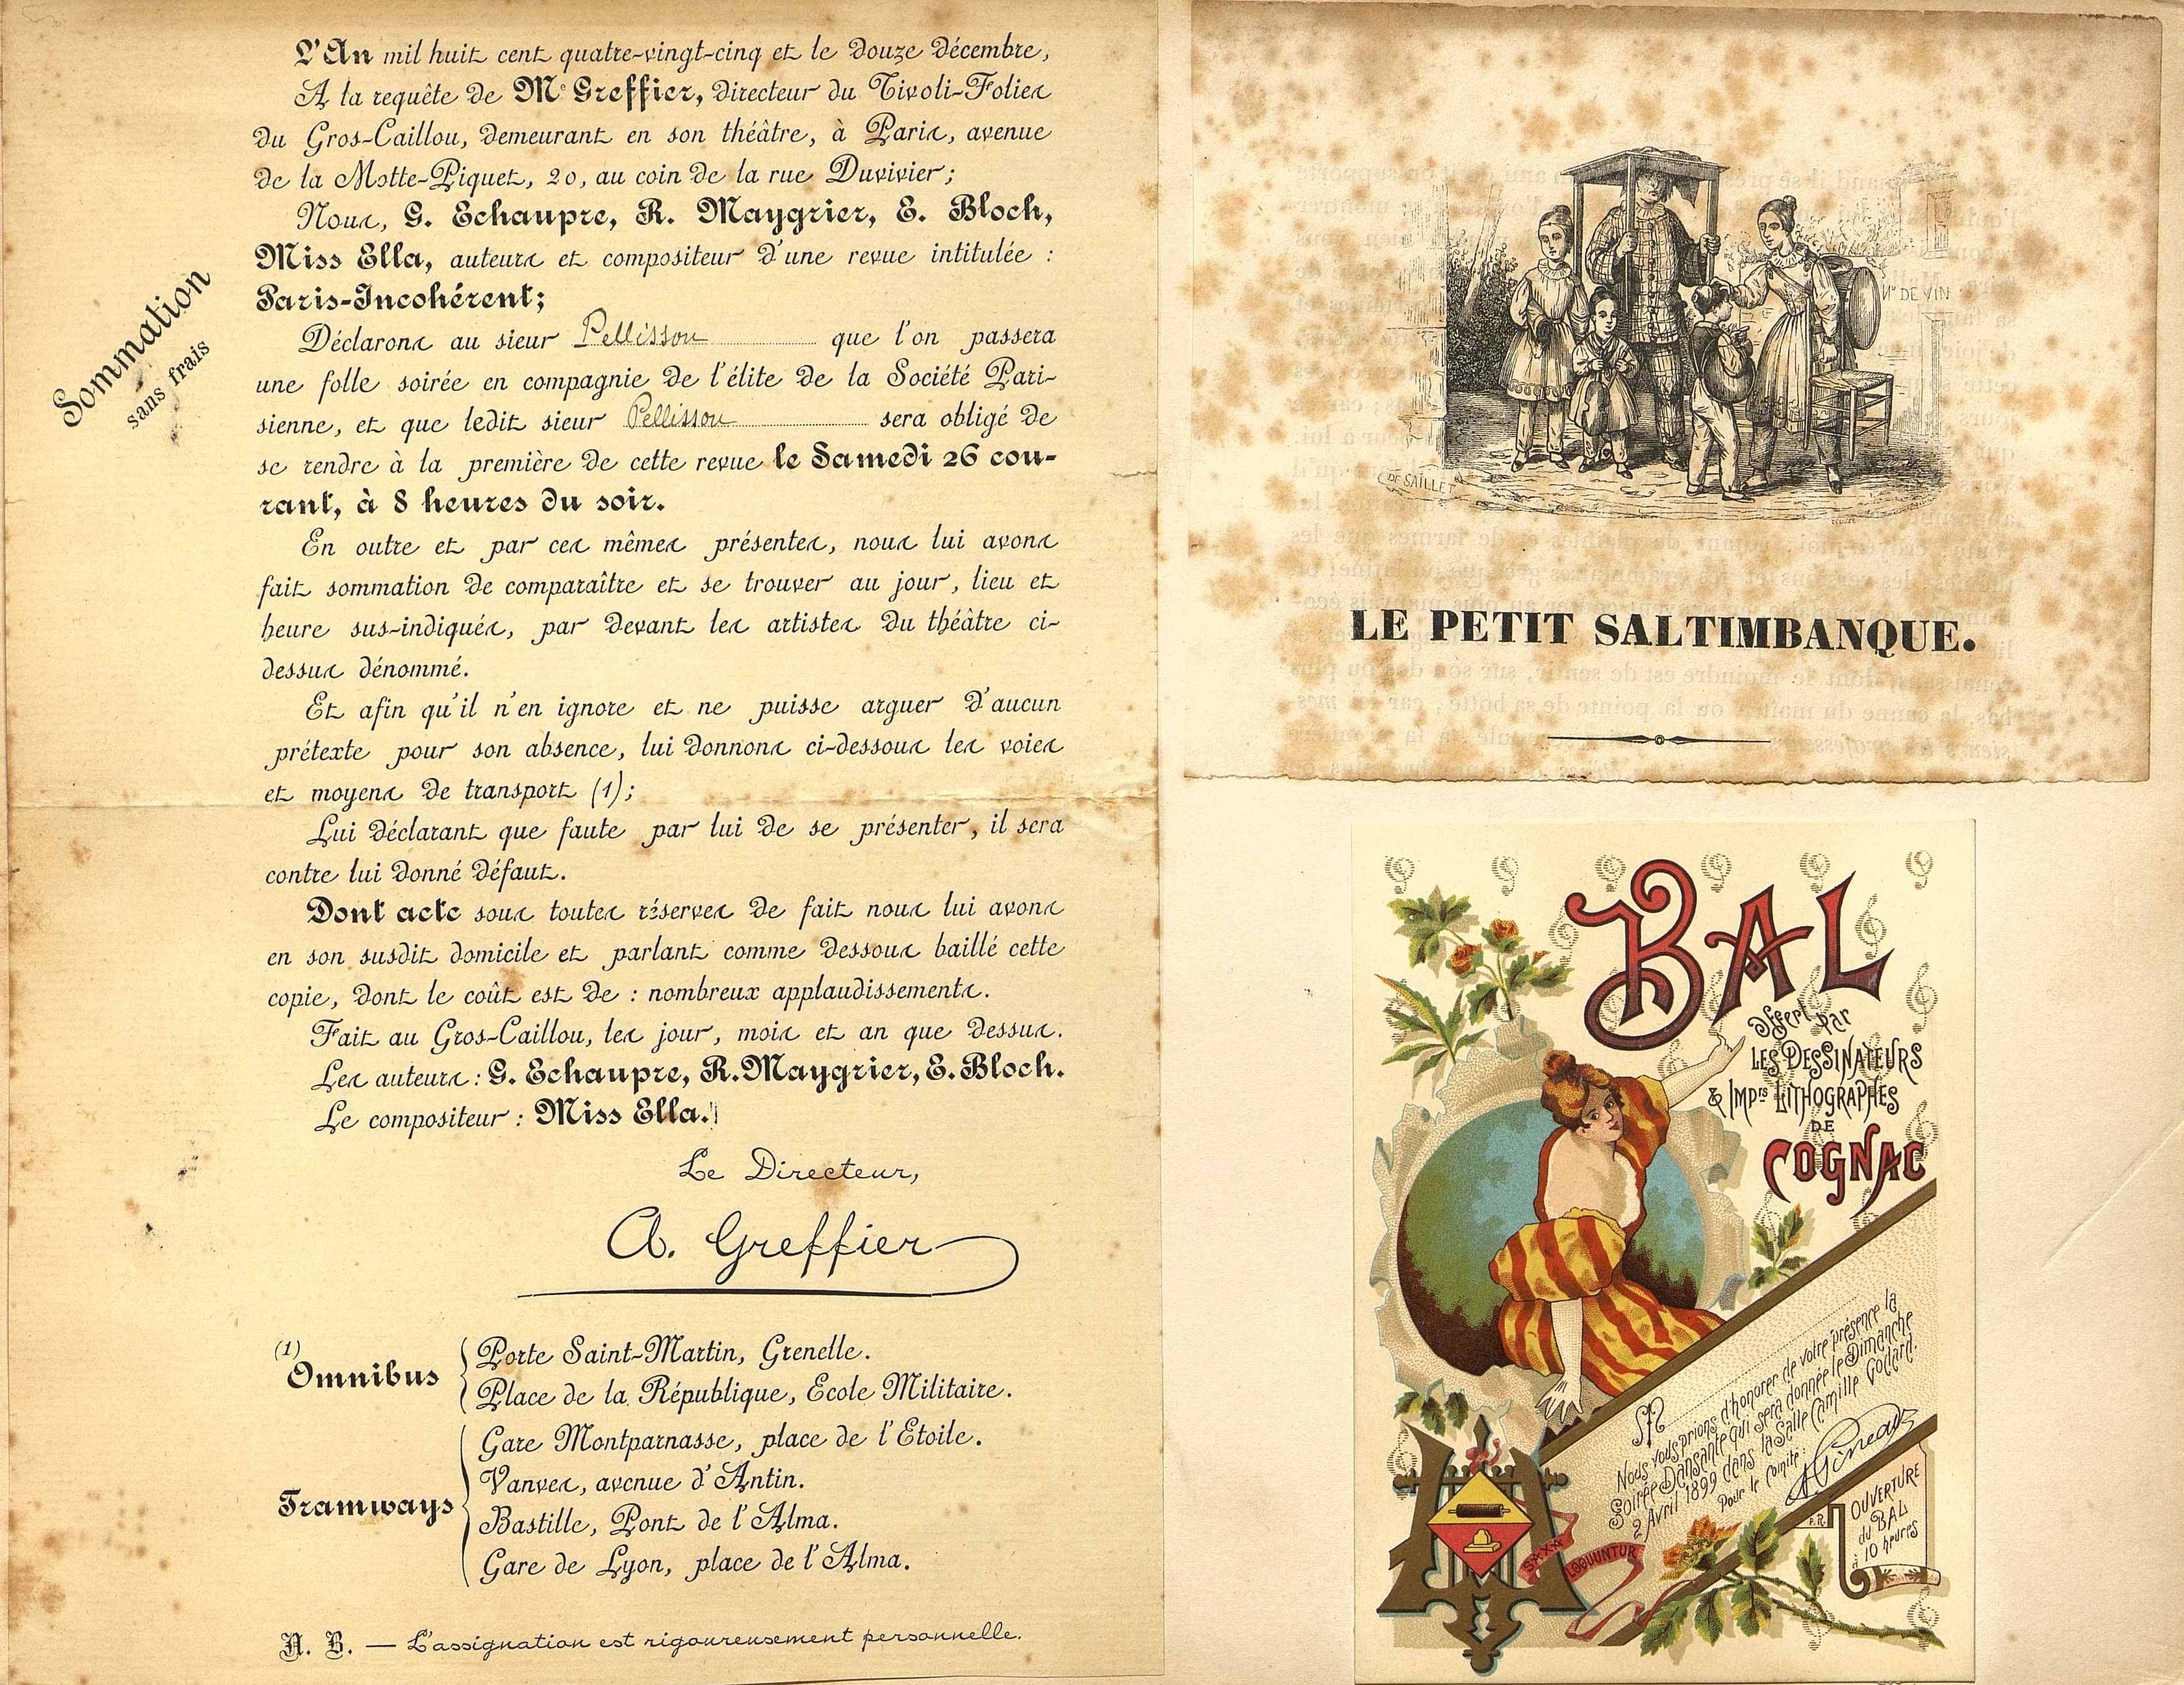 Sommation
sans frais
L'An mil huit cent quatre-vingt-cinq et le douze décembre,
A la requête de Me Greffier, directeur du Tivoli-Folies
du Gros-Caillou, demeurant en son théâtre, à Paris, avenue
de la Motte-Piquet, 20, au coin de la rue Duvivier;
Nous, G. Echaupre, R. Maygrier, E. Bloch,
Miss Ella, auteurs et compositeur d'une revue intitulée :
Paris-Incohérent;
Déclarons au sieur Pellisson que l'on passera
une folle soirée en compagnie de l'élite de la Société Pari-
sienne, et que ledit sieur Pellisson sera obligé de
se rendre à la première de cette revue le Samedi 26 cou-
rant, à 8 heures du soir.
En outre et par ces mêmes présentes, nous lui avons
fait sommation de comparaître et se trouver au jour, lieu et
heure sus-indiqués, par devant les artistes du théâtre ci-
dessus dénommé.
Et afin qu'il n'en ignore et ne puisse arguer d'aucun
prétexte pour son absence, lui donnons ci-dessous les voies
et moyens de transport (1);
Lui déclarant que faute par lui de se présenter, il sera
contre lui donné défaut.
Dont acte sous toutes réserves de fait nous lui avons
en son susdit domicile et parlant comme dessous baillé cette
copie, dont le coût est de : nombreux applaudissements.
Fait au Gros-Caillou, les jour, mois et an que dessus.
Les auteurs : G. Echaupre, R. Maygrier, E. Bloch.
Le compositeur : Miss Ella.
Le Directeur,
A. Greffier
(1)
Omnibus
Porte Saint-Martin, Grenelle.
Place de la République, Ecole Militaire.
Tramways
Gare Montparnasse, place de l'Etoile.
Vanves, avenue d'Antin.
Bastille, Pont de l'Alma.
Gare de Lyon, place de l'Alma.
N. B. — L'assignation est rigoureusement personnelle.
Md DE VIN
DE SAILLET
LE PETIT SALTIMBANQUE.
BAL
Offert par
LES DESSINATEURS
& IMPrs LITHOGRAPHES
DE
COGNAC
M
Nous vous prions d'honorer de votre présence la
Soirée Dansante qui sera donnée le Dimanche
2 Avril 1899 dans la Salle Camille Godard.
Pour le Comité :
A Gineau
P.R.
OUVERTURE
du BAL
à 10 heures
SAXA
LOQUUNTUR